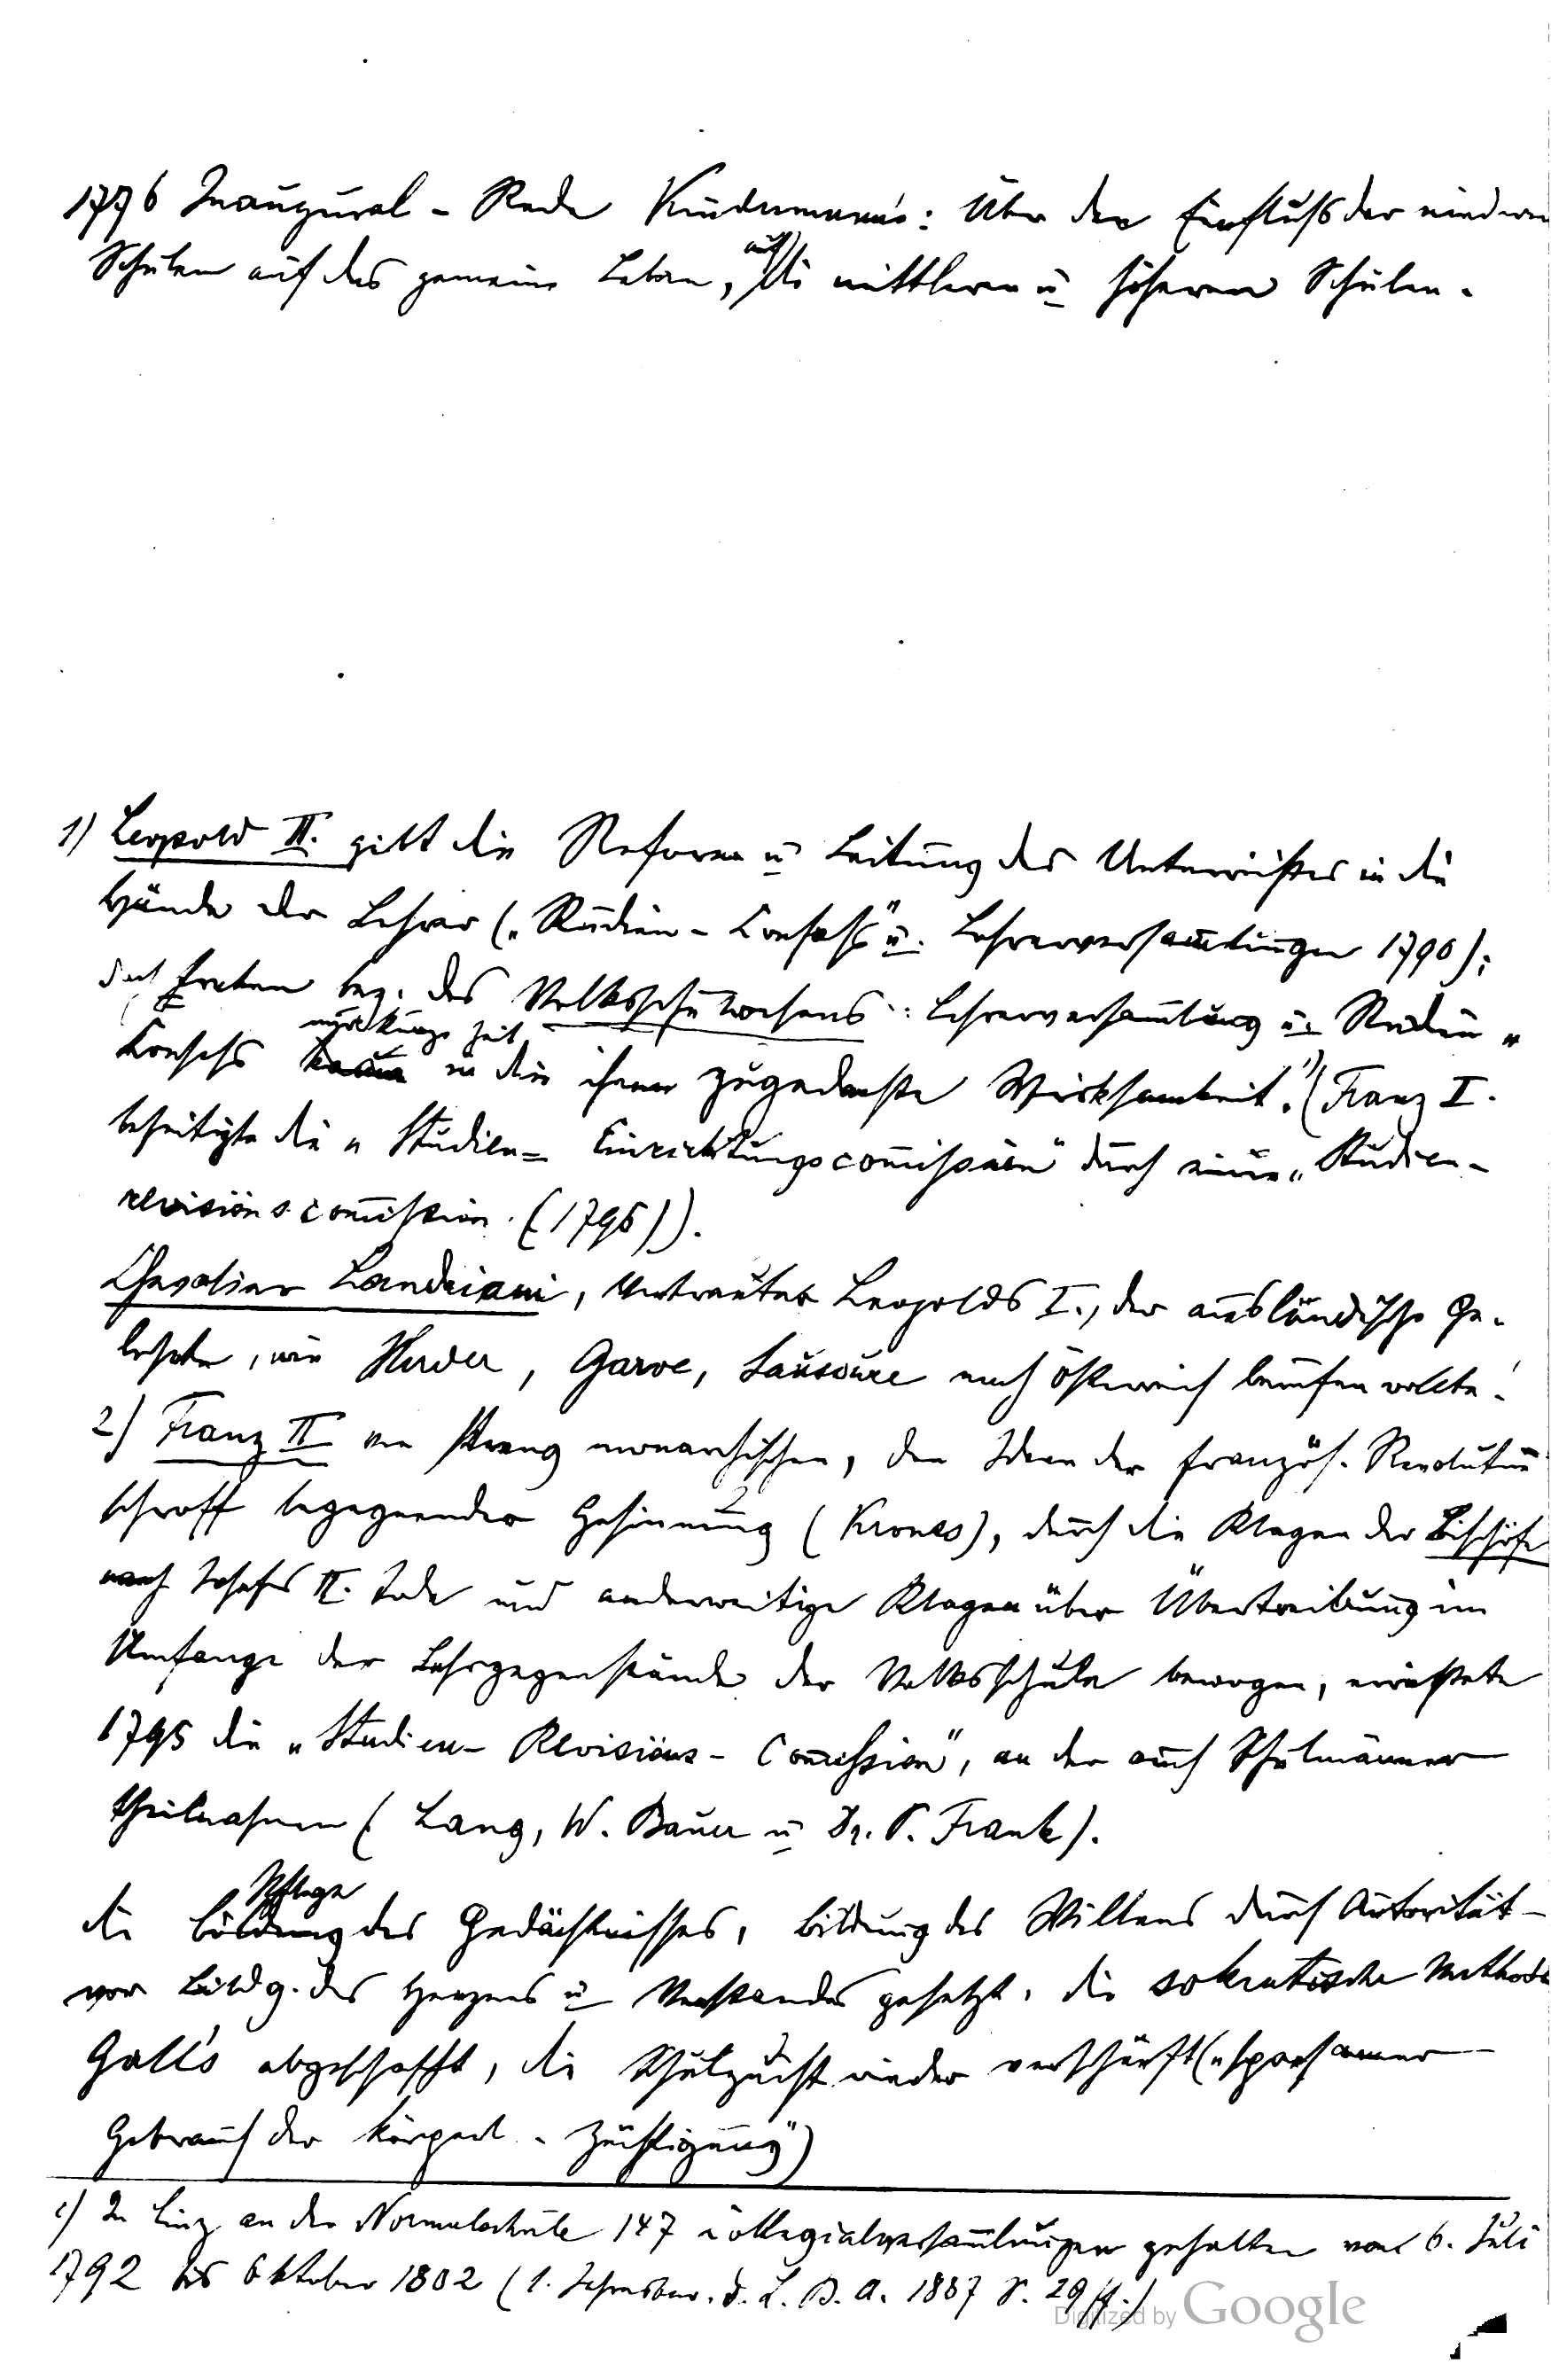 1776 Inaugural - Rede Kindermann's: Über den Einfluß der niederen
Schulen auf das gemeine Leben, auf die mittleren u höheren Schulen.
1) Leopold II. gibt die Reform u Leitung des Unterrichtes in die
Hände der Lehrer („Studien-Consess" u. Lehrerversammlungen 1790);
doch traten bez. des Volksschulwesens Lehrerversammlung u. Studien-
Consess nur kurze Zeit in die ihnen zugedachte Wirksamkeit.1) (Franz I.
beseitigte die „Studien= Einrichtungscommission" durch eine „Studien-
revisionscommission. (1795)).
Chevalier Landriani, Vertrauter Leopolds I., der ausländische Ge-
lehrte, wie Herder, Garve, Sausoure nach Österreich berufen wollte.
2) Franz II von streng monarchischer, den Ideen der französ. Revolution
schroff begegnender Gesinnung (Krones), durch die Klagen der Bischöfe
nach Josefs II. Tode und anderweitige Klagen über Übertreibung im
Umfange der Lehrgegenstände der Volksschule bewogen, errichtete
1795 die „Studien- Revisions- Commission", an der auch Schulmänner
theilnahmen (Lang, W. Bauer u Dr. P. Frank).
die Pflege des Gedächtnisses, Bildung des Willens durch Autorität -
vor Bildg. des Herzens u Verstandes gesetzt, die sokratische Methode
Gall's abgeschafft, die Schulzucht wieder verschärft („sparsamer
Gebrauch der körperl. Züchtigung")
1) In Linz an der Normalschule 147 Collegialversammlungen gehalten vom 6. Juli
1792 bis Oktober 1802 (1. Jahresber. d. L. B. A. 1887 S. 29 ff.)
Digitized by Google